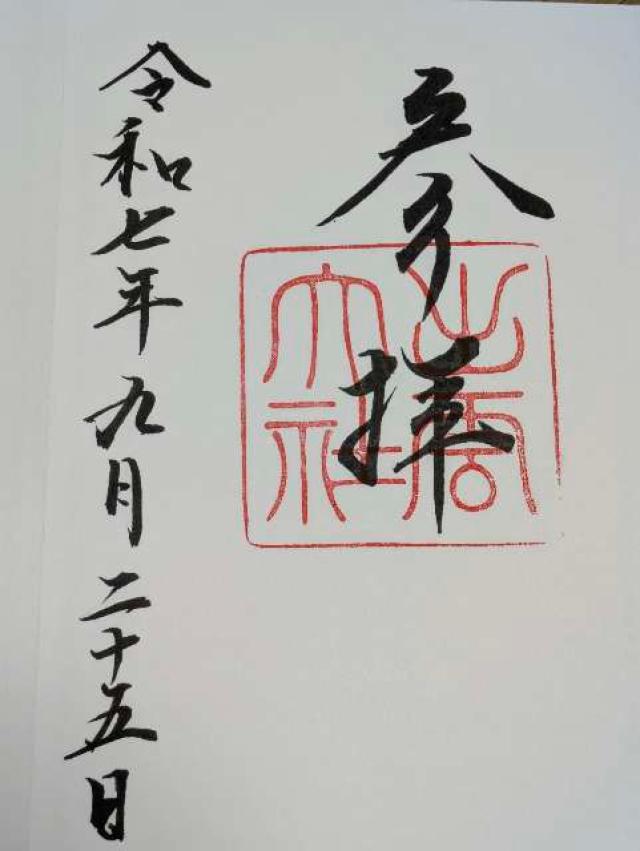 参拝
出雲
大社
令和七年九月二十五日